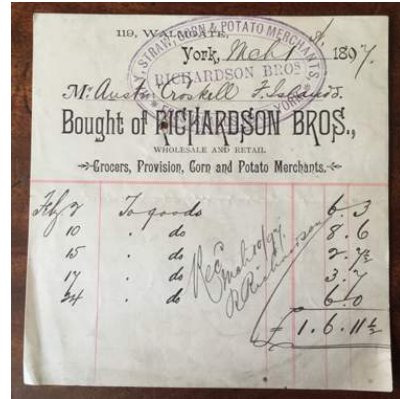 119, WALMGATE,
York, Mch 1st 1897.
HAY, STRAW, CORN & POTATO MERCHANTS,
RICHARDSON BROS
Mr Austin Croskell F. Islands.
Bought of RICHARDSON BROS.,
WHOLESALE AND RETAIL
Grocers, Provision, Corn and Potato Merchants.
Feby 2 To goods 6. 3
10 " do 8. 6
15 " do 2. 7½
17 " do 3. 7
24 " do 6. 0
£ 1. 6. 11½
Recd Mch 10/97
R Richardson